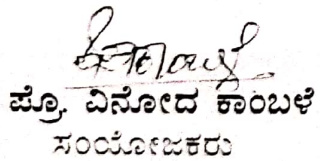 ಪ್ರೊ. ವಿನೋದ ಕಾಂಬಳೆ
ಸಂಯೋಜಕರು